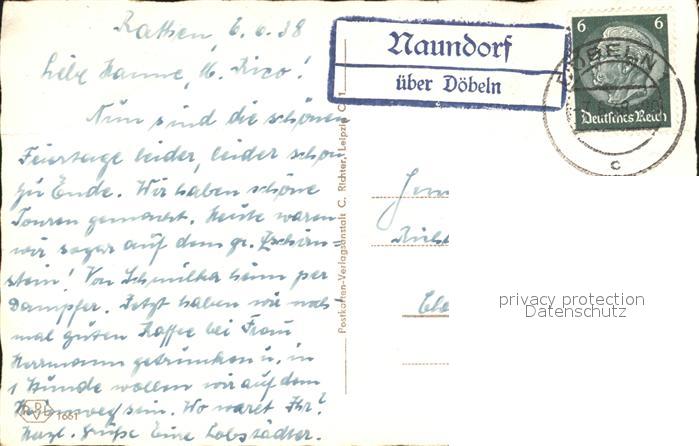 Rathen, 6.6.38
Liebe Hanne, u. Rico!
Nun sind die schönen
Feiertage leider, leider schon
zu Ende. Wir haben schöne
Touren gemacht. Heute waren
wir sogar auf dem gr. Zschirn-
stein! Von Schmilka heim per
Dampfer. Jetzt haben wir noch-
mal guten Kaffee bei Frau
Herrmann getrunken u. in
1 Stunde wollen wir auf dem
Heimweg sein. Wo waret Ihr?
Herzl. Grüße Eure Lobstädter.
1651
Postkarten-Verlagsanstalt C. Richter, Leipzig C 1
Naundorf
über Döbeln
6 6
Deutsches Reich
DÖBELN 1
c
privacy protection
Datenschutz